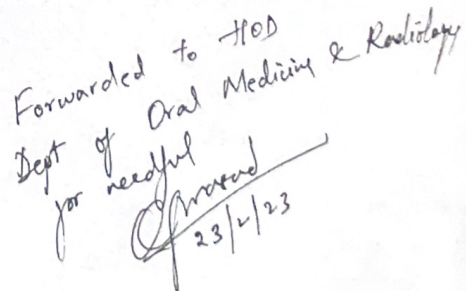 Forwarded to HOD
Dept of Oral Medicine & Radiology
for needful
23/2/23